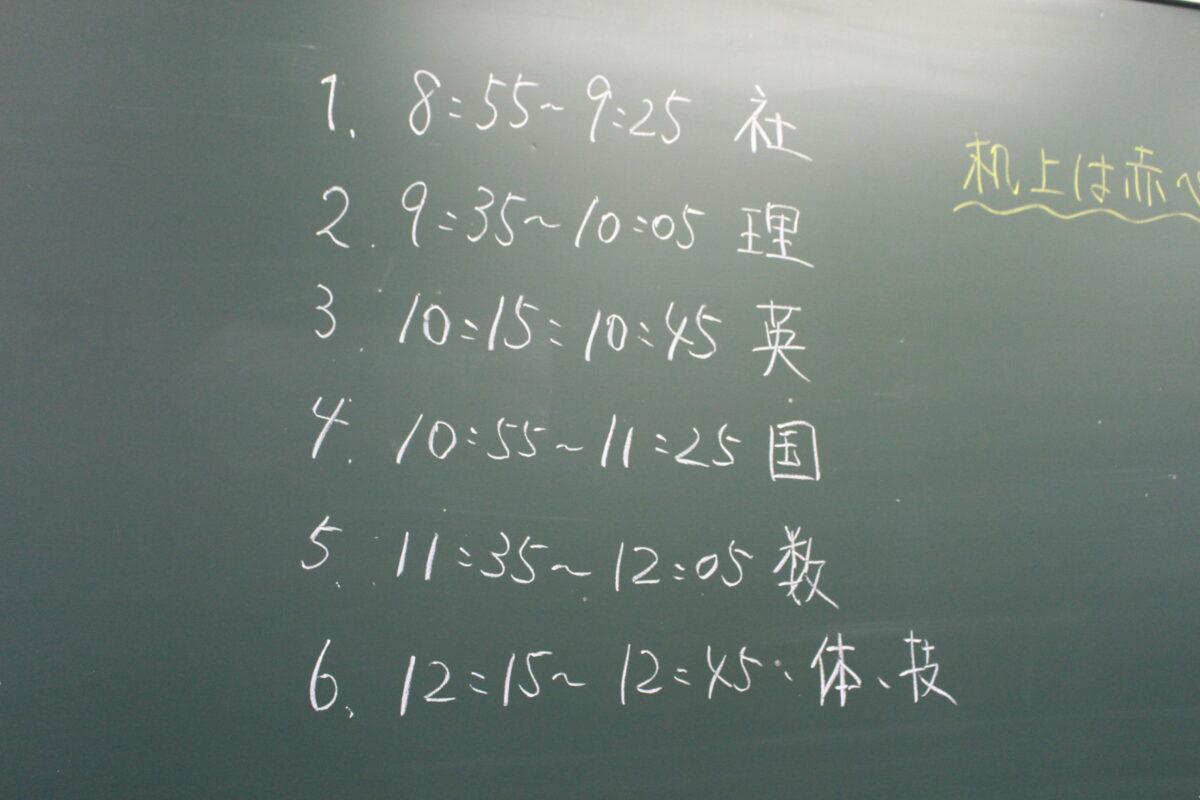 1. 8:55~9:25 社
2. 9:35~10:05 理
3. 10:15:10:45 英
4. 10:55~11:25 国
5. 11:35~12:05 数
6. 12:15~12:45、体、技
机上は赤ペ